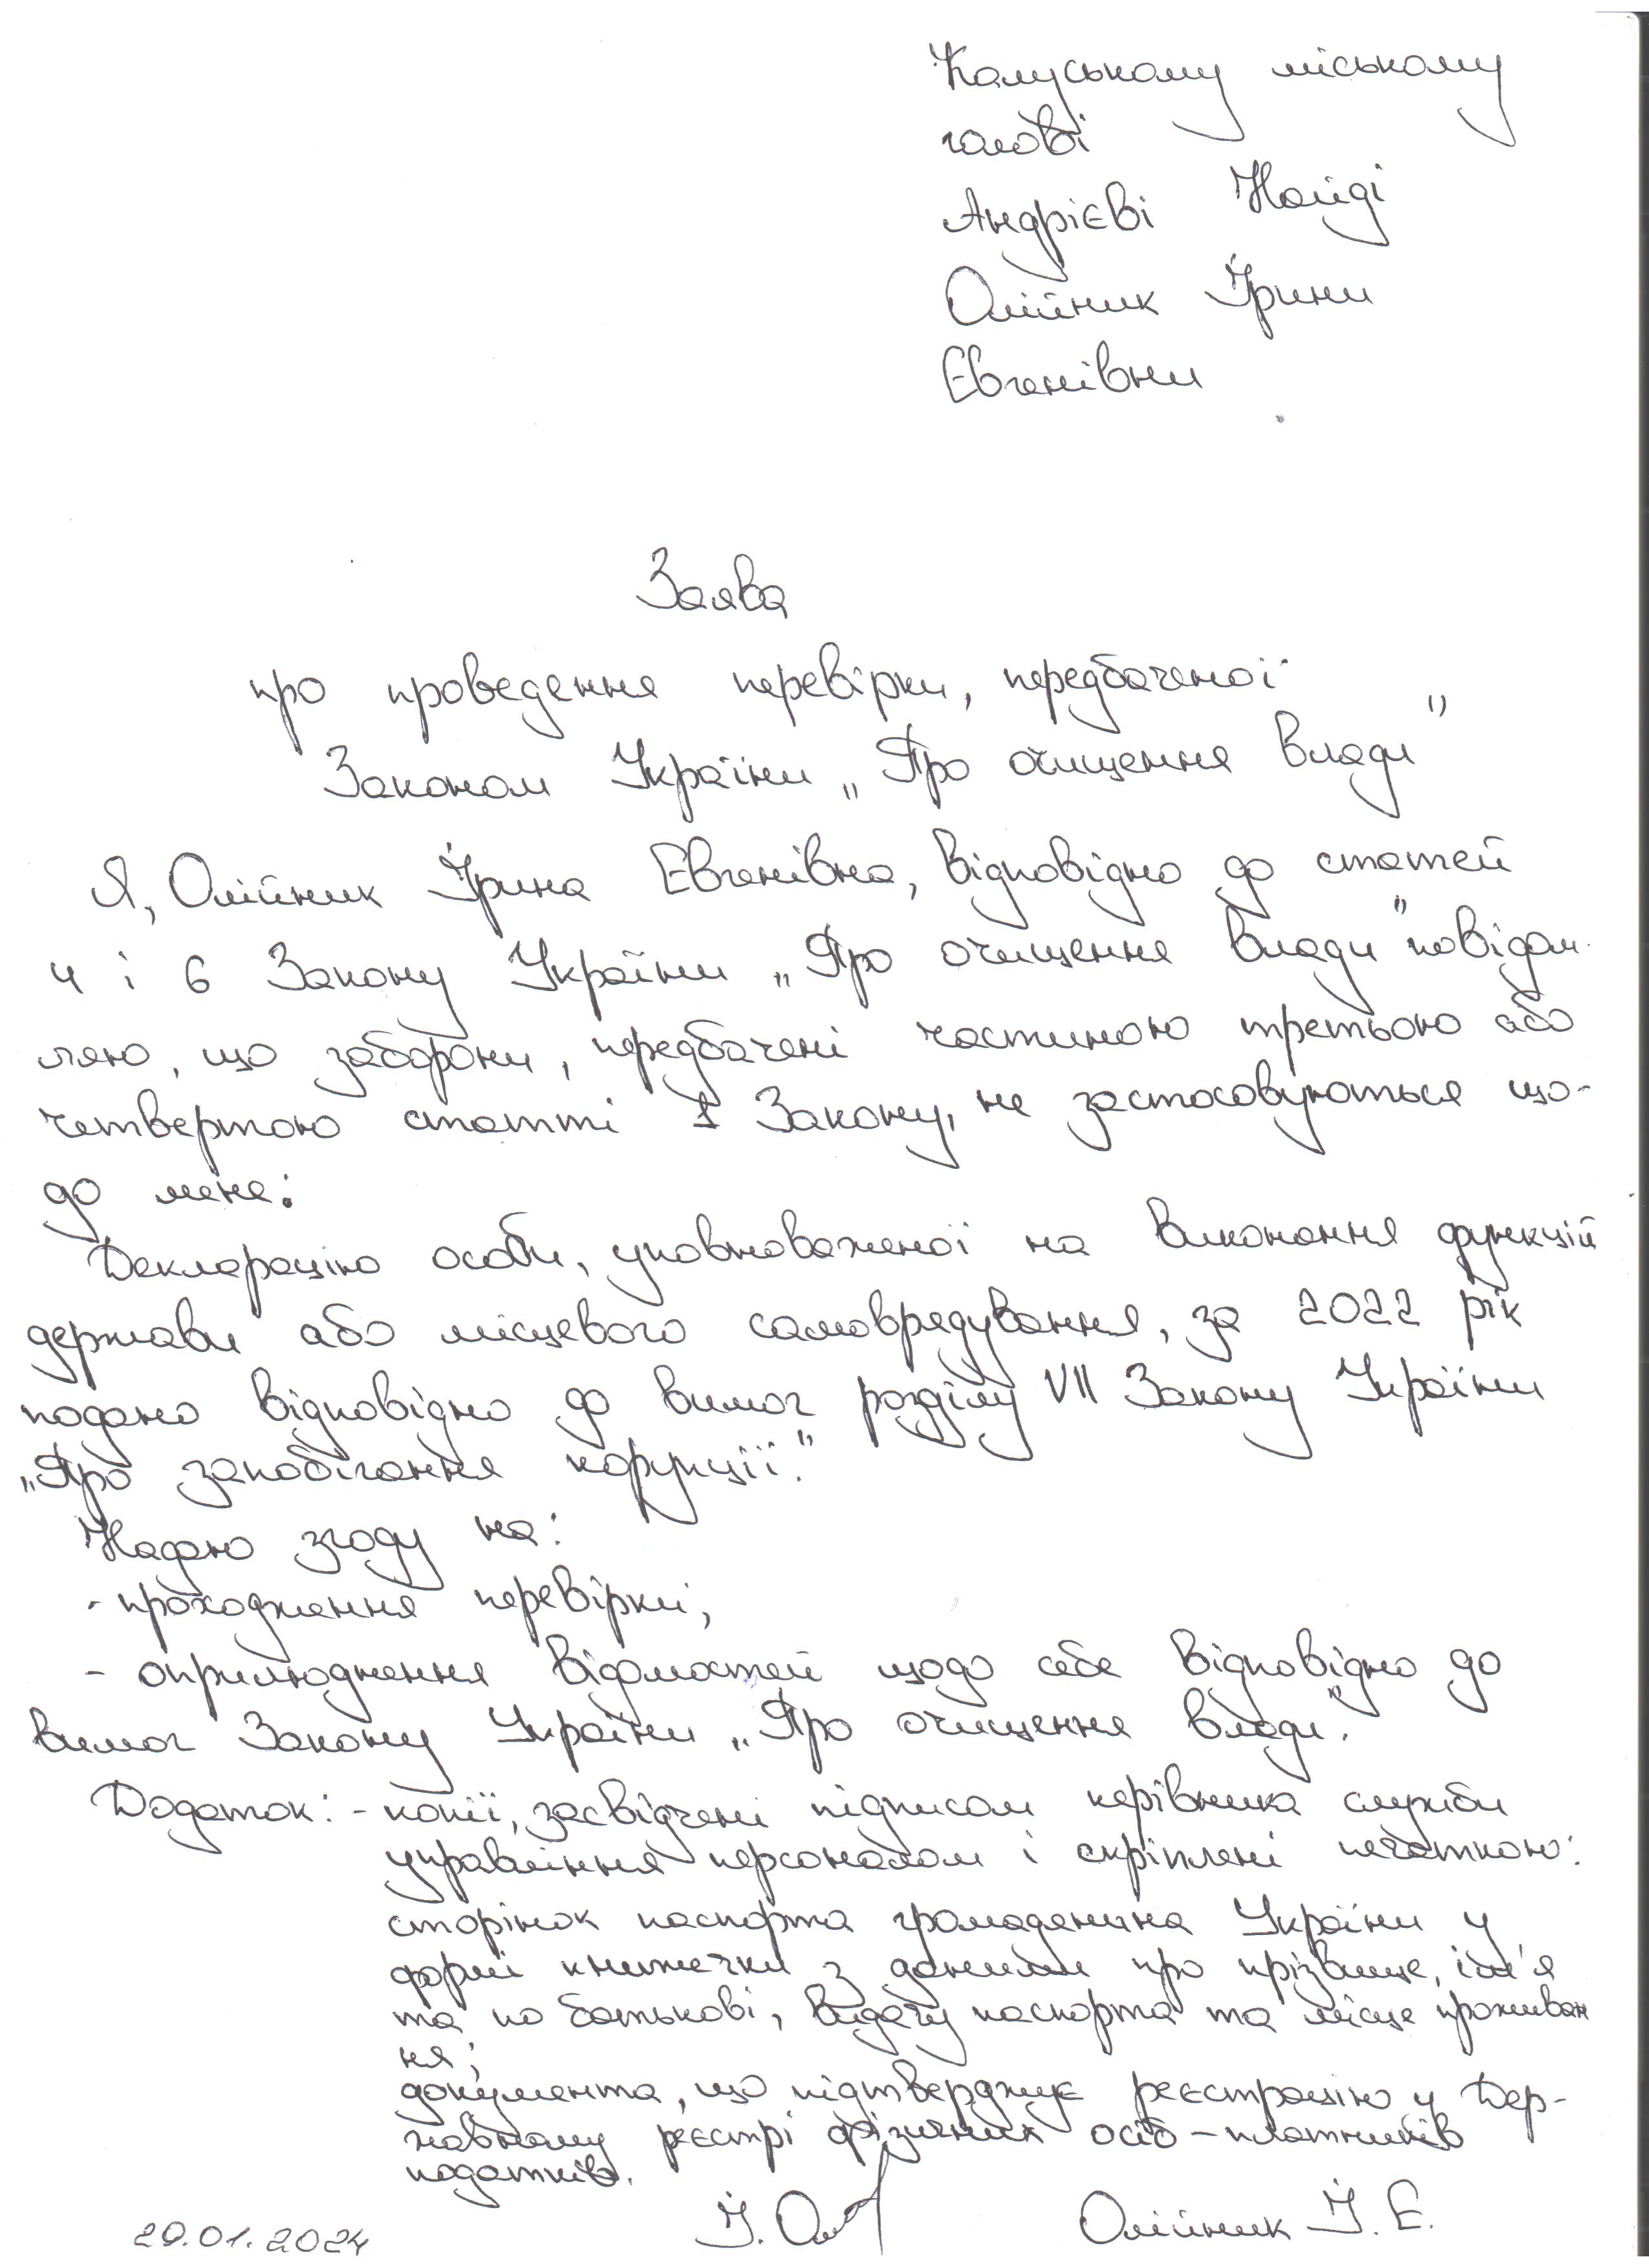 Калуському міському
голові
Андрієві Найді
Олійник Ірини
Євгенівни
Заява
про проведення перевірки, передбаченої
Законом України „Про очищення влади"
Я, Олійник Ірина Євгенівна, відповідно до статей
4 і 6 Закону України „Про очищення влади" повідом-
ляю, що заборони, передбачені частиною третьою або
четвертою статті 1 Закону, не застосовуються що-
до мене:
Декларацію особи, уповноваженої на виконання функцій
держави або місцевого самоврядування, за 2022 рік
подано відповідно до вимог розділу VII Закону України
„Про запобігання корупції."
Надаю згоду на:
- проходження перевірки;
- оприлюднення відомостей щодо себе відповідно до
вимог Закону України „Про очищення влади".
Додаток: - копії, засвідчені підписом керівника служби
управління персоналом і скріплені печаткою:
сторінок паспорта громадянина України у
формі книжечки з даними про прізвище, ім'я
та по батькові, видачу паспорта та місце проживан
ня;
документа, що підтверджує реєстрацію у Дер-
жавному реєстрі фізичних осіб - платників
податків.
29.01.2024 Олійник І. Є.